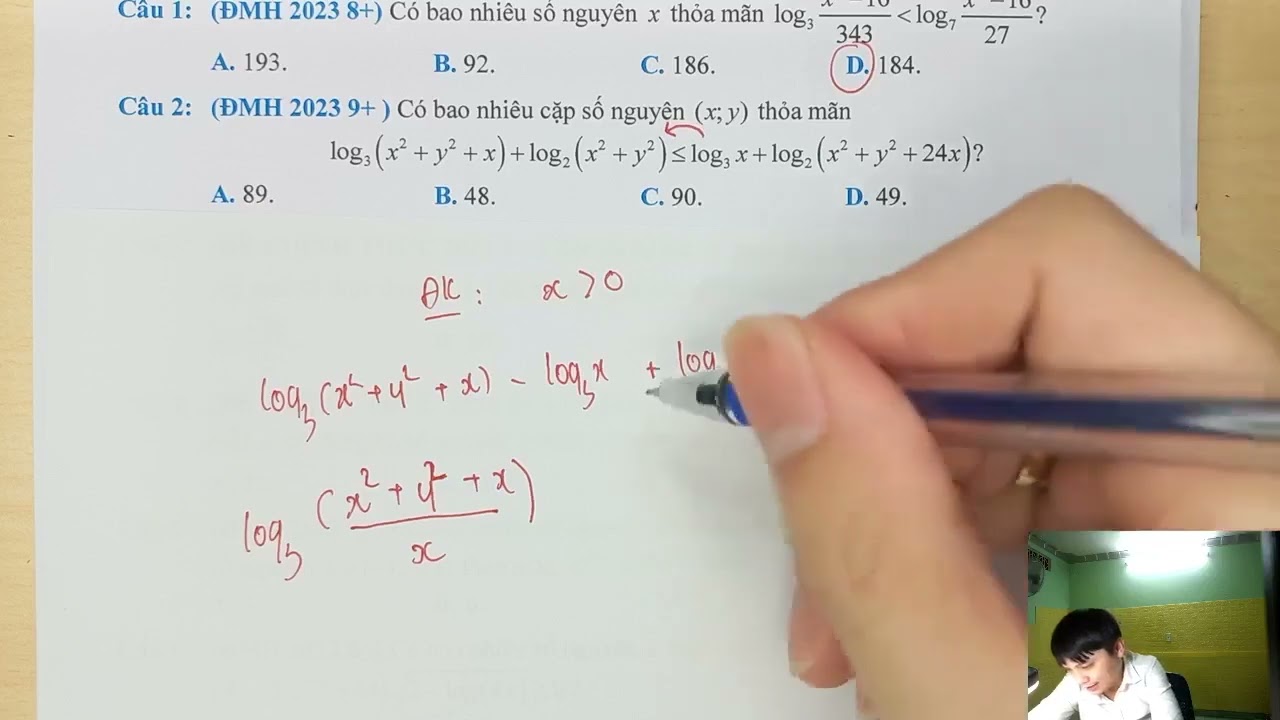 Câu 1: (ĐMH 2023 8+) Có bao nhiêu số nguyên x thỏa mãn log₃ (x² − 16)/343 < log₇ (x² − 16)/27?
A. 193. B. 92. C. 186. D. 184.
Câu 2: (ĐMH 2023 9+ ) Có bao nhiêu cặp số nguyên (x; y) thỏa mãn
log₃(x² + y² + x) + log₂(x² + y²) ≤ log₃ x + log₂(x² + y² + 24x)?
A. 89. B. 48. C. 90. D. 49.
ĐK : x > 0
log₃(x² + y² + x) − log₃x + log
log₃ (x² + y² + x)/x